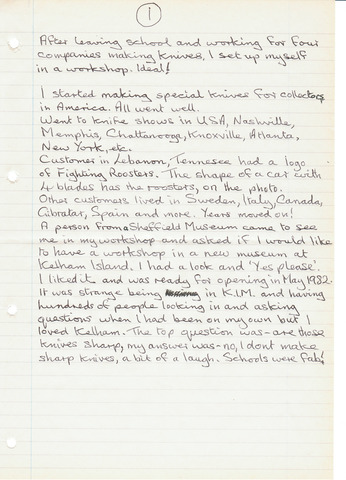 1
After leaving school and working for four
companies making knives, I set up myself
in a workshop. Ideal!
I started making special knives for collectors
in America. All went well.
Went to knife shows in USA, Nashville,
Memphis, Chattanooga, Knoxville, Atlanta,
New York, etc.
Customer in Lebanon, Tennesee had a logo
of Fighting Roosters. The shape of a car with
4 blades has the roosters, on the photo.
Other customers lived in Sweden, Italy, Canada,
Gibratar, Spain and more. Years moved on!
A person from a Sheffield Museum came to see
me in my workshop and asked if I would like
to have a workshop in a new museum at
Kelham Island. I had a look and 'Yes please'.
I liked it and was ready for opening in May 1982.
It was strange being in K.I.M. and having
hundreds of people looking in and asking
questions when I had been on my own but I
loved Kelham. The top question was - are those
knives sharp, my answer was - no, I dont make
sharp knives, a bit of a laugh. Schools were fab!